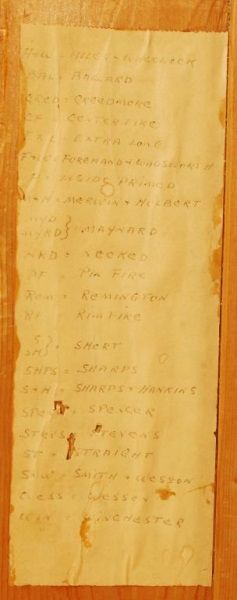 H+W - HILL + WHEELOCK
BAL = BALLARD
CRED = CREEDMORE
CF = CENTER FIRE
EXL = EXTRA LONG
F+W = FOREHAND + WADSWORTH
INSIDE PRIMED
M+H = MERWIN + HULBERT
MYD
MYRD } = MAYNARD
NKD = NECKED
PF = PIN FIRE
REM = REMINGTON
RF = RIMFIRE
S
SH } = SHORT
SHPS = SHARPS
S+H = SHARPS + HANKINS
SPEN = SPENCER
STEVS = STEVENS
ST = STRAIGHT
S+W = SMITH + WESSON
WESS = WESSON
WIN = WINCHESTER